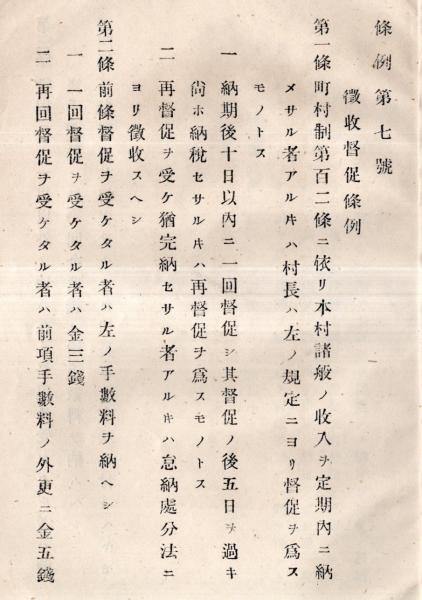 條例第七號
徵收督促條例
第一條町村制第百二條ニ依リ本村諸般ノ收入ヲ定期內ニ納
メサル者アルキハ村長ハ左ノ規定ニヨリ督促ヲ爲ス
モノトス
一 納期後十日以內ニ一回督促シ其督促ノ後五日ヲ過キ
尙ホ納稅セサルキハ再督促ヲ爲スモノトス
二 再督促ヲ受ケ猶完納セサル者アルキハ怠納處分法ニ
ヨリ徵收スヘシ
第二條前條督促ヲ受ケタル者ハ左ノ手數料ヲ納ヘシ
一 一回督促ヲ受ケタル者ハ金三錢
二 再回督促ヲ受ケタル者ハ前項手數料ノ外更ニ金五錢